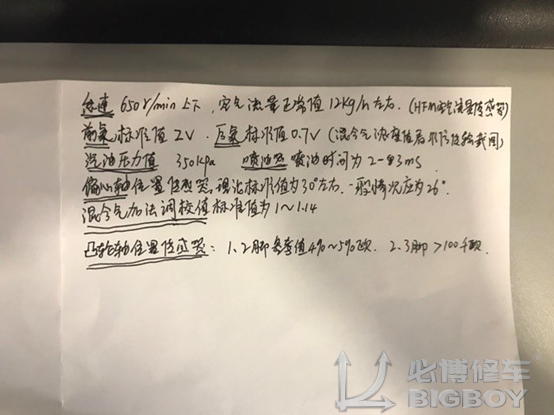 怠速 650r/min 上下，空气流量正常值12kg/h左右．(HFM空气流量传感器)
前氧标准值2V．后氧标准值0.7V (混合气浓度值后氧
汽油压力值 350kpa 喷油器喷油时间为2-3ms
偏心轴位置传感器，理论标准值为30°左右．一般情况应为26°．
混合气加法调校值标准值为1～1.14
凸轮轴位置传感器：1.2脚参考值4%～5%欧．2.3脚>100千欧．
必博修车
BIGBOY